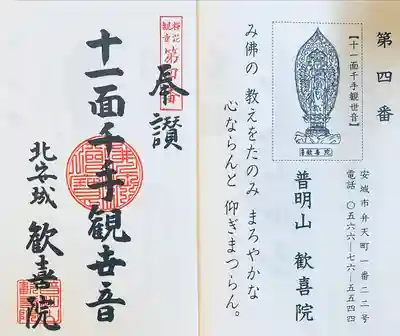 第四番
【十一面千手観世音】
歓喜院
安城市弁天町一番二二号
電話 〇五六六―七六―五五四四
普明山 歓喜院
み佛の 教えをたのみ まろやかな
心ならんと 仰ぎまつらん。
桜花
観音
第四番
奉讃
十一面千手観世音
北安城 歓喜院